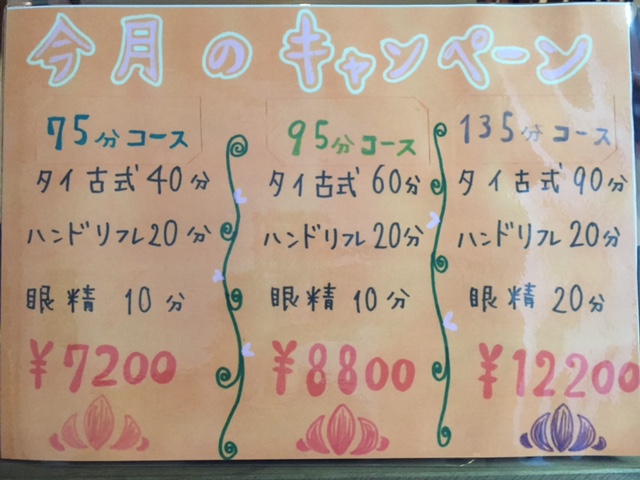 今月のキャンペーン
75分コース
タイ古式40分
ハンドリフレ20分
眼精 10分
¥7200
95分コース
タイ古式60分
ハンドリフレ20分
眼精 10分
¥8800
135分コース
タイ古式90分
ハンドリフレ20分
眼精 20分
¥12200